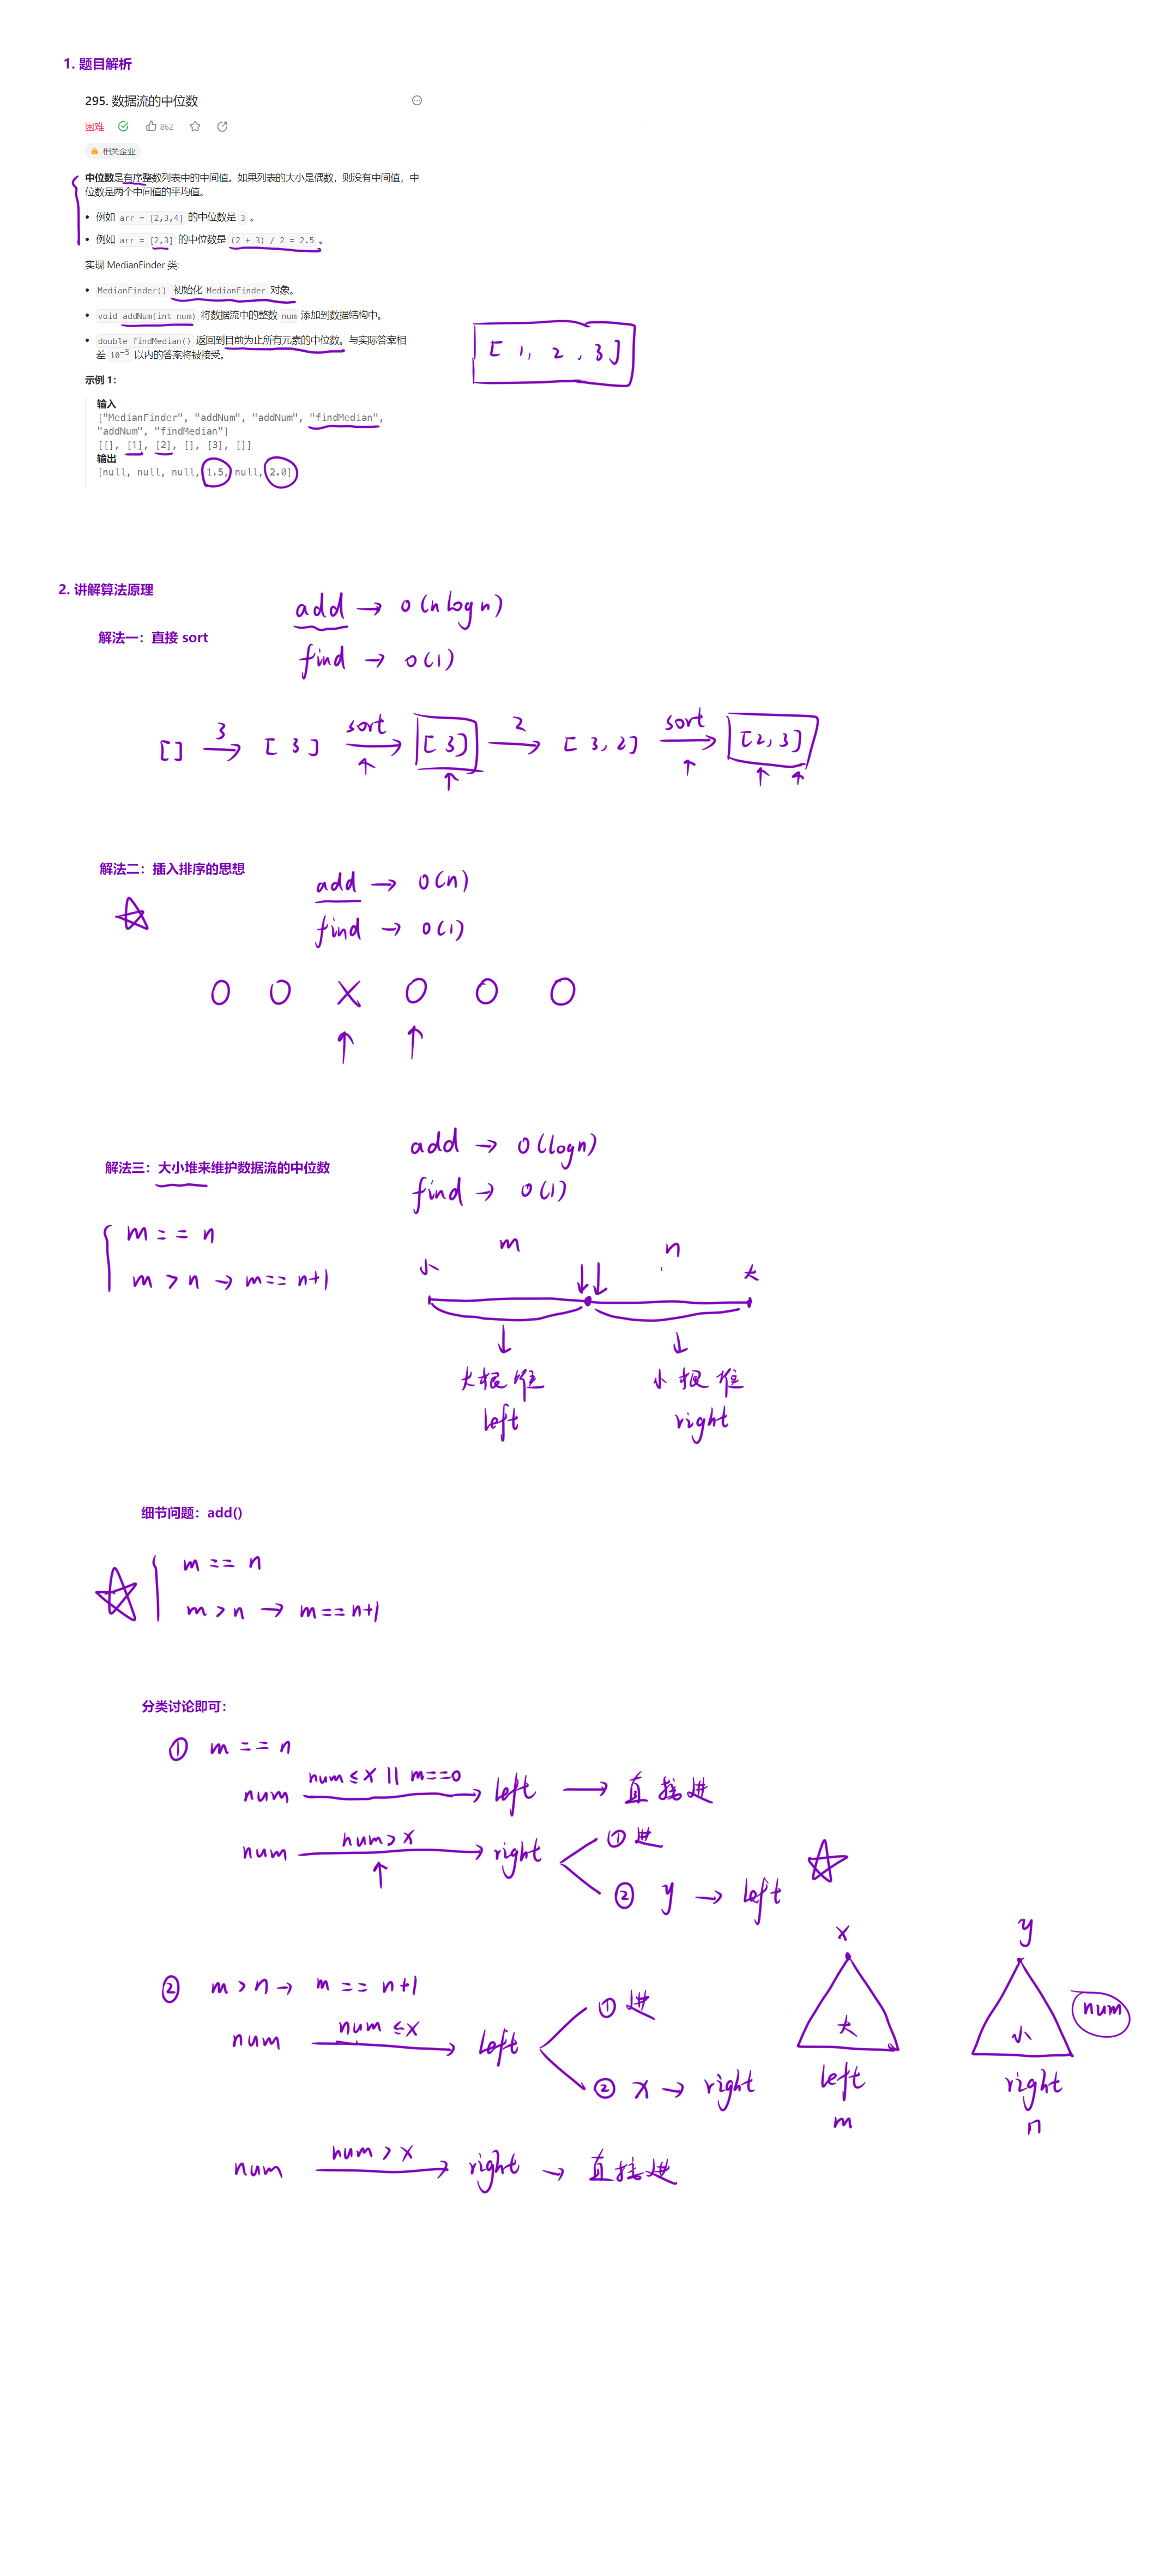 1. 题目解析
295. 数据流的中位数
困难 862
相关企业
中位数是有序整数列表中的中间值。如果列表的大小是偶数，则没有中间值，中
位数是两个中间值的平均值。
• 例如 arr = [2,3,4] 的中位数是 3 。
• 例如 arr = [2,3] 的中位数是 (2 + 3) / 2 = 2.5 。
实现 MedianFinder 类:
• MedianFinder() 初始化 MedianFinder 对象。
• void addNum(int num) 将数据流中的整数 num 添加到数据结构中。
• double findMedian() 返回到目前为止所有元素的中位数。与实际答案相
差 10⁻⁵ 以内的答案将被接受。
[ 1, 2 , 3 ]
示例 1：
输入
["MedianFinder", "addNum", "addNum", "findMedian",
"addNum", "findMedian"]
[[], [1], [2], [], [3], []]
输出
[null, null, null, 1.5, null, 2.0]
2. 讲解算法原理
add → O(nlogn)
解法一：直接 sort
find → O(1)
[] 3→ [ 3 ] sort→ [ 3] 2→ [ 3, 2] sort→ [2, 3]
解法二：插入排序的思想
add → O(n)
find → O(1)
O O X O O O
add → O(logn)
解法三：大小堆来维护数据流的中位数
find → O(1)
m == n
m > n → m== n+1
m n
小 大
大根堆 小根堆
left right
细节问题：add()
m == n
m > n → m==n+1
分类讨论即可：
① m == n
num num≤x || m==0→ left → 直接进
num num>x→ right ① 进
② y → left
② m > n → m == n+1
num num ≤x→ left ① 进
② x → right
num num > x→ right → 直接进
x y
大 小 num
left right
m n